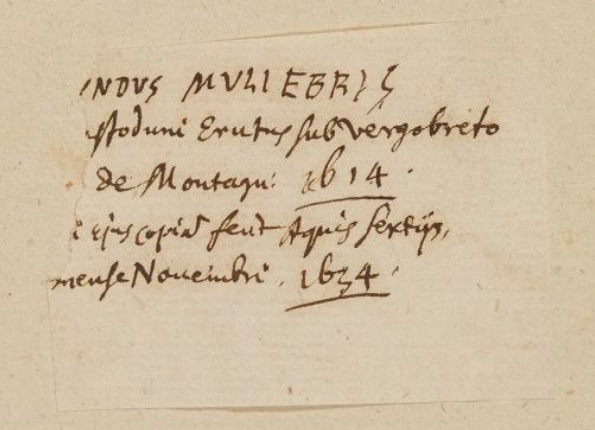 INDVS MVLIEBRIS
stoduni Erutus sub vergobreto
de Montagu: 1614.
ejus copiā fecit Aquis Sextijs,
mense Nouembri. 1634.